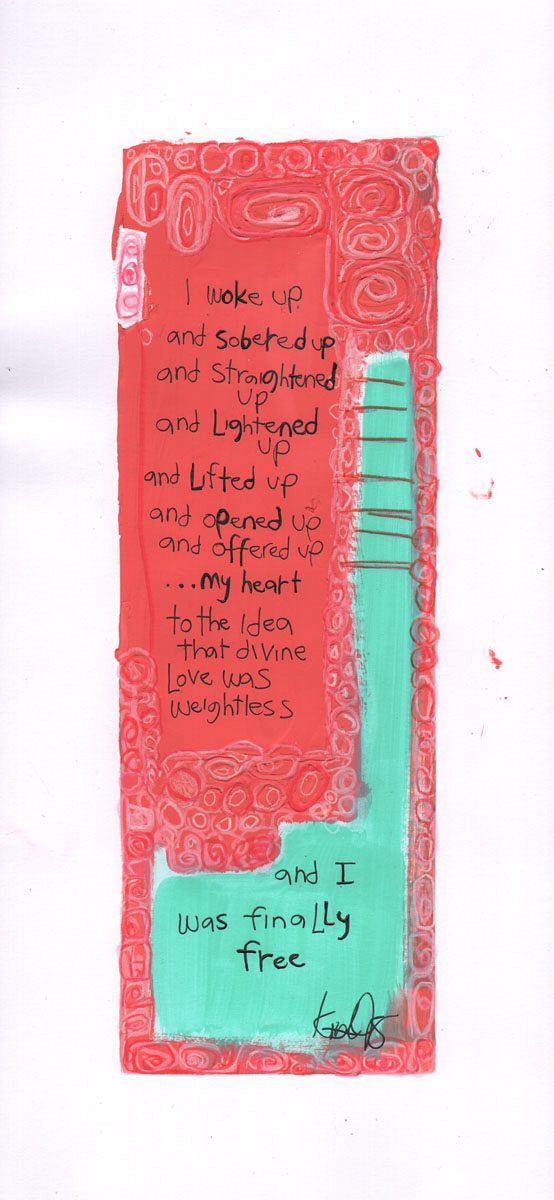 I woke up
and sobered up
and straightened
up
and Lightened
up
and Lifted up
and opened up
and offered up
...my heart
to the Idea
that divine
Love was
weightless
and I
was finaLLy
free